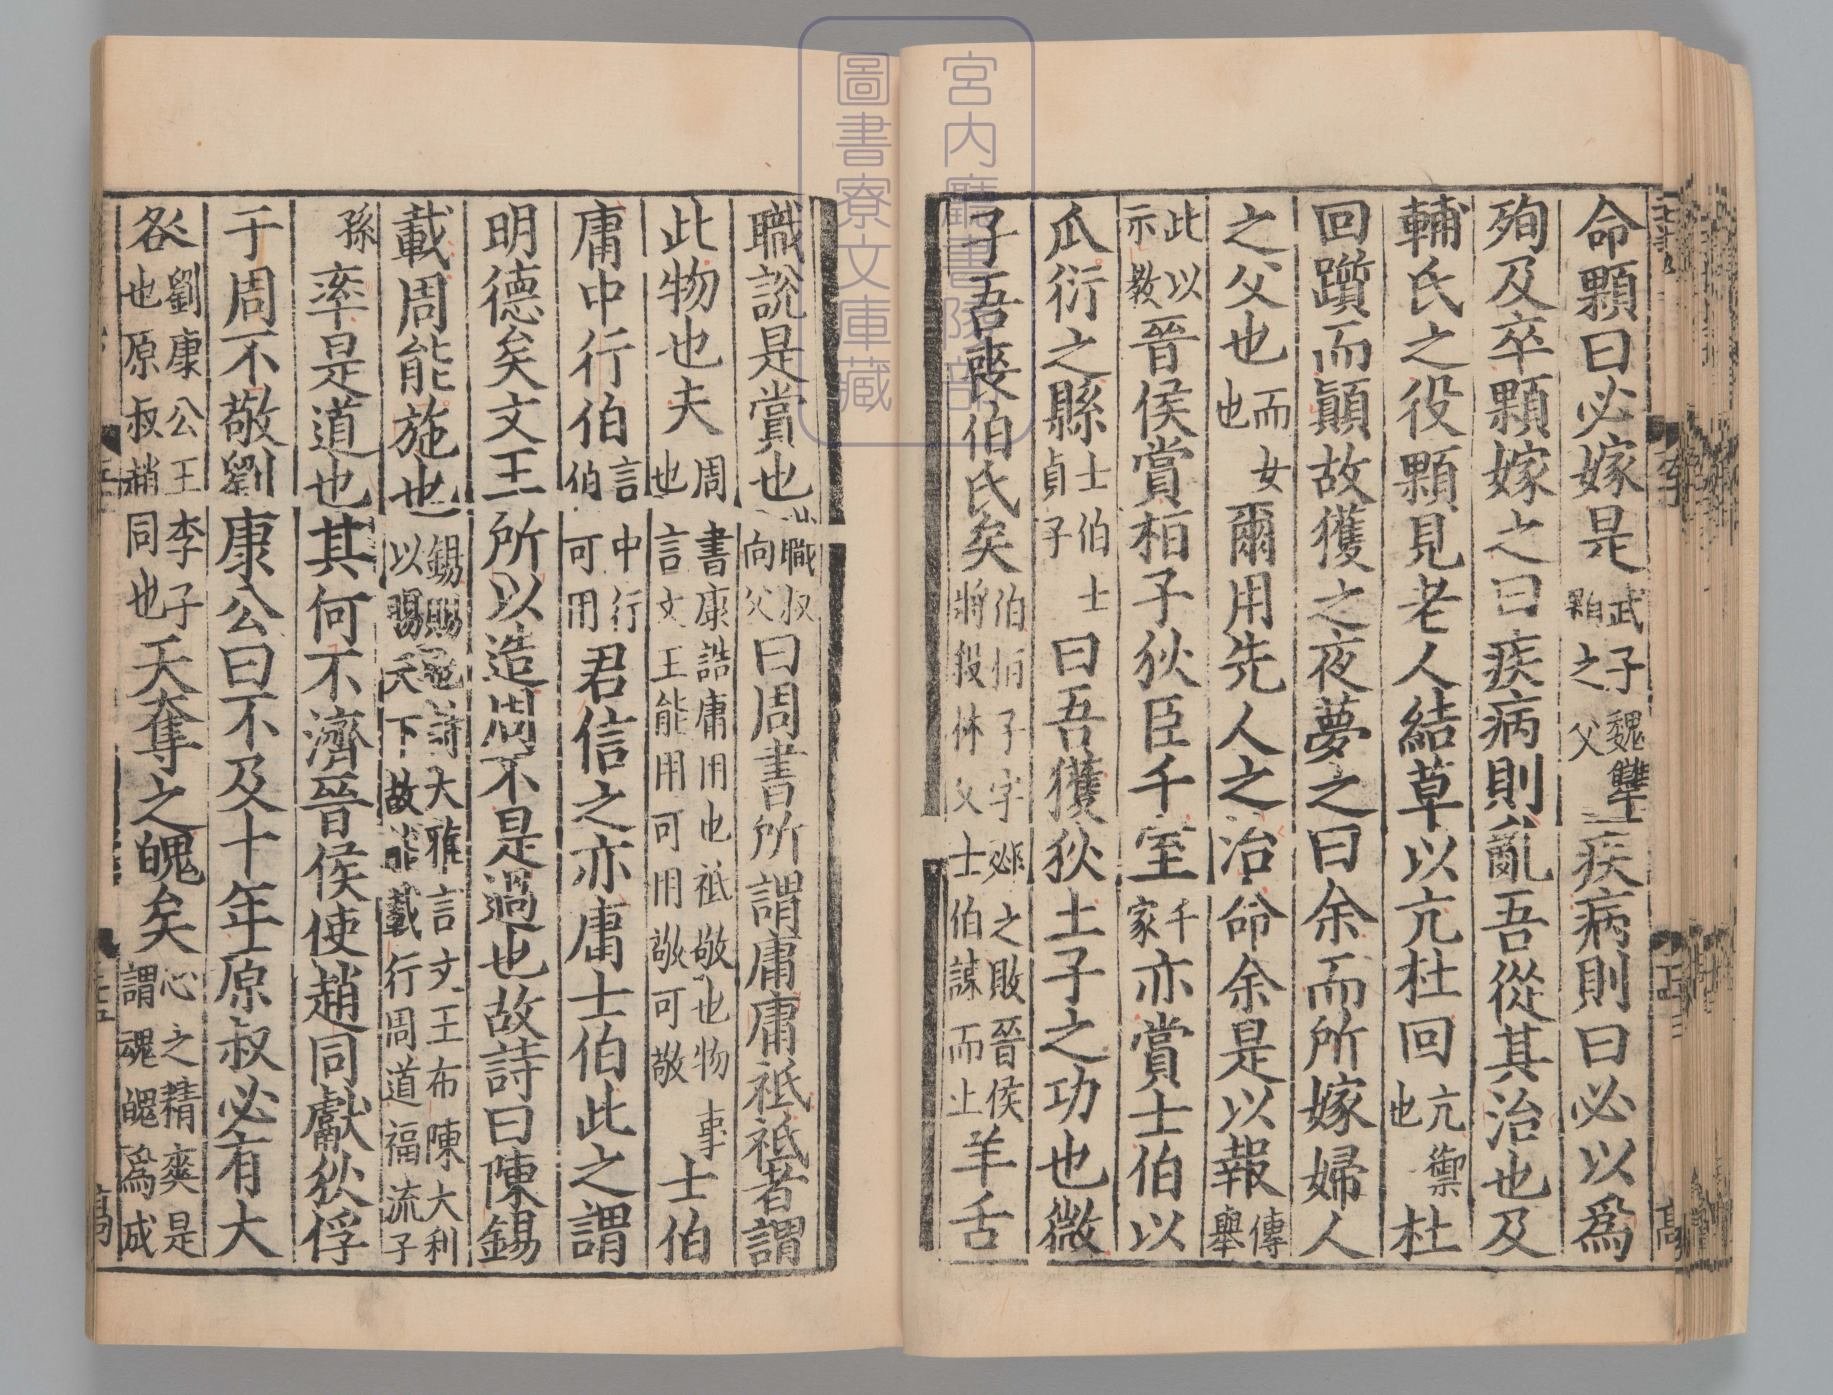 命顆曰必嫁是武子魏犨顆之父疾病則曰必以爲
殉及卒顆嫁之曰疾病則亂吾從其治也及
輔氏之役顆見老人結草以亢杜回亢禦也杜
回躓而顚故獲之夜夢之曰余而所嫁婦人
之父也而女也爾用先人之治命余是以報傳舉
此以示教晉侯賞桓子狄臣千室千家亦賞士伯以
瓜衍之縣士伯士貞子曰吾獲狄土子之功也微
子吾喪伯氏矣伯桓子字邲之敗晉侯將殺林父士伯諫而止羊舌
職說是賞也職叔向父曰周書所謂庸庸祗祗者謂
此物也夫周書康誥庸用也祗敬也物事也言文王能用可用敬可敬士伯
庸中行伯言中行伯可用君信之亦庸士伯此之謂
明德矣文王所以造周不是過也故詩曰陳錫
載周能施也錫賜也詩大雅言文王布陳大利以賜天下故能載行周道福流子
孫率是道也其何不濟晉侯使趙同獻狄俘
于周不敬劉康公曰不及十年原叔必有大
咎劉康公王季子也原叔趙同也天奪之魄矣心之精爽是謂魂魄爲成
宮内廳書陵部
圖書寮文庫藏